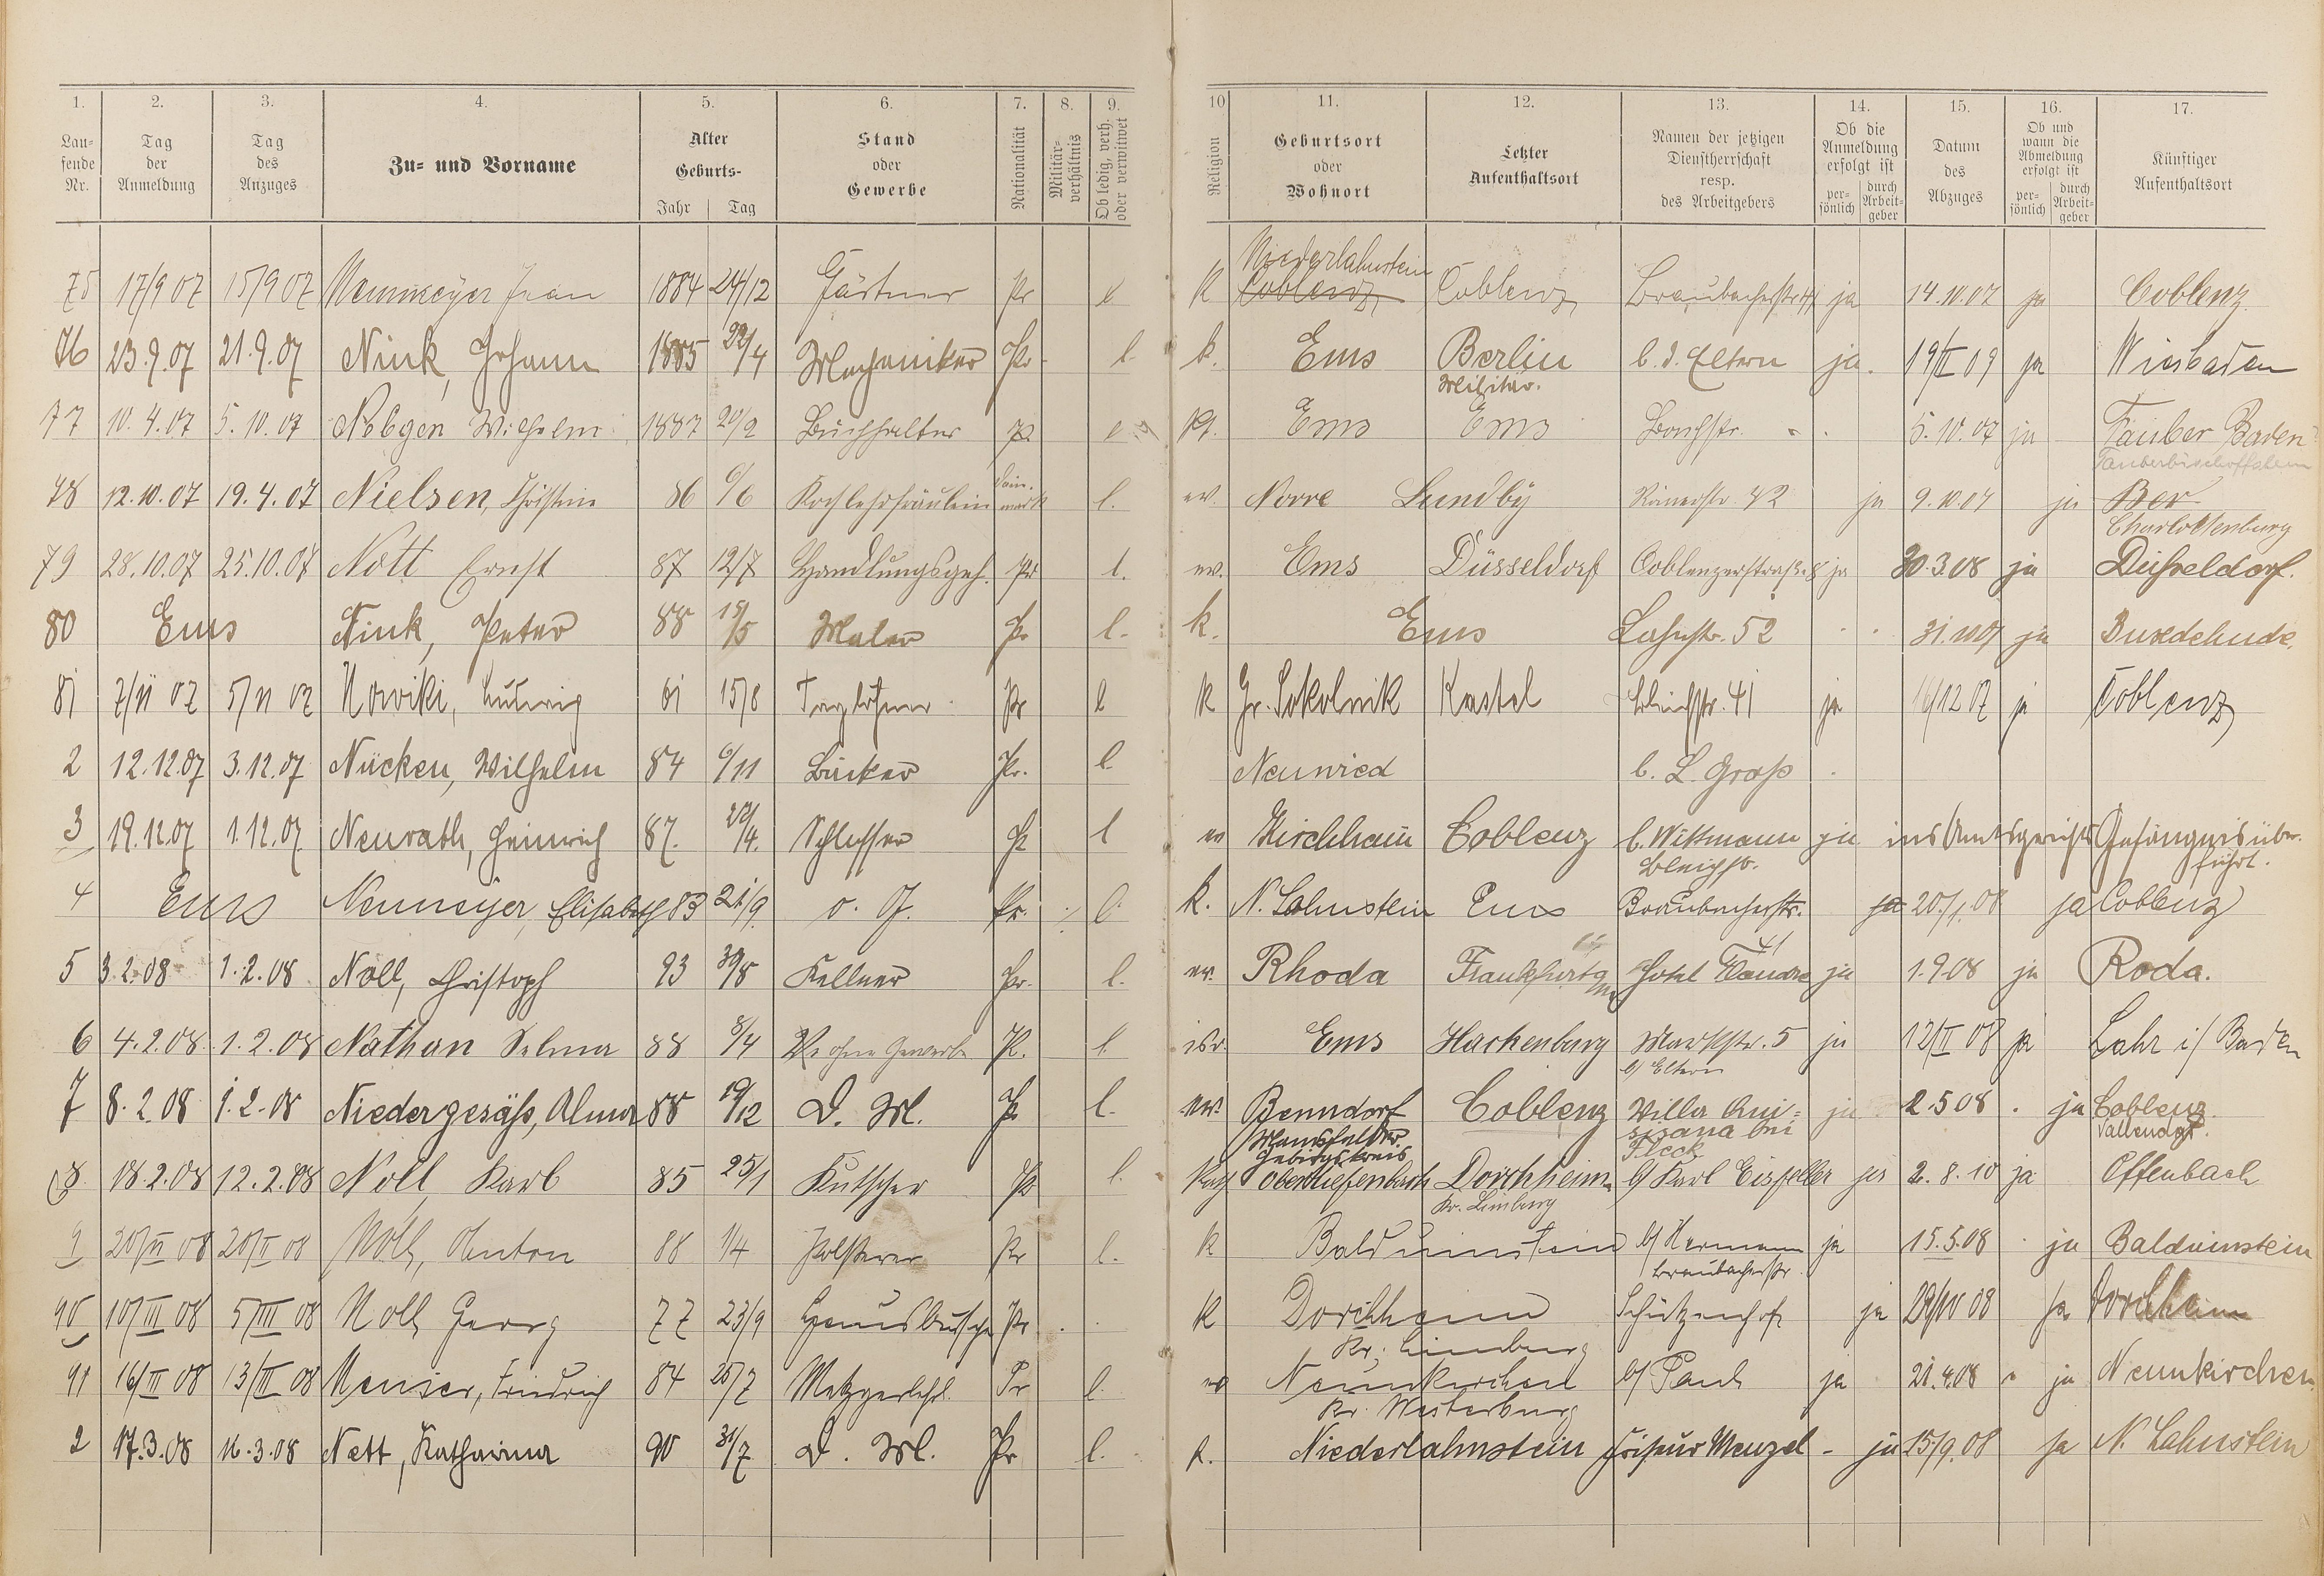 1. 2. 3. 4. 5. 6. 7. 8. 9. 10 11. 12. 13. 14. 15. 16. 17.
Laufende Nr.
Tag der Anmeldung
Tag des Anzuges
Zu- und Vorname
Alter
Geburts-
Jahr Tag
Stand oder Gewerbe
Nationalität
Militär-verhältnis
Ob ledig, verh. oder verwitwet
Religion
Geburtsort oder Wohnort
Letzter Aufenthaltsort
Namen der jetzigen Dienstherrschaft resp. des Arbeitgebers
Ob die Anmeldung erfolgt ist
per-sönlich durch Arbeit-geber
Datum des Abzuges
Ob und wann die Abmeldung erfolgt ist
per-sönlich durch Arbeit-geber
Künftiger Aufenthaltsort
75 17/9 07 15/9 07 Jean 1884 24/12 Gärtner Pr l K Niederlahnstein Coblenz Coblenz Braubacherstr ja 14.10.07 ja Coblenz
76 23.9.07 21.9.07 Nink, Johann 1885 /4 Mechaniker Pr. l. k. Ems Berlin Militär. b. d. Eltern ja. 19/II 09 ja Wiesbaden
77 10.4.07 5.10.07 Nöbgen Wilhelm 1887 20/2 Buchhalter Ems Ems 5.10.07 ja Tauber Baden
Tauberbischoffsheim
78 12.10.07 19.4.07 Nielsen, Christine 86 6/6 Kochlehrfräulein Dänmark l. ev. Norre Sundby Römerstr. 42 ja 9.10.07 ja Ber
Charlottenburg
79 28.10.07 25.10.07 Nott Ernst 87 12/7 Handlungsgeh. Pr l. ev. Ems Düsseldorf Coblenzerstraße 8 ja 30.3.08 ja Düsseldorf.
80 Ems Nink, Peter 88 15/5 Maler Pr l. k. Ems Lahnstr. 52 ja Buxdehude.
81 7/11 07 5/11 07 Nowiki, Ludwig 61 15/8 Taglöhner Pr l K Gr. Sokolnik Kastel Bleichstr. 41 ja 16/12 07 ja Coblenz
2 12.12.07 3.12.07 Nücken, Wilhelm 84 6/11 Bäcker Pr. l. Neuwied b. L. Groß
3 19.12.07 1.12.07 Neurath, Heinrich 87. /4. Schlosser Pr l ev Kirchhain Coblenz b. Wittmann ja ins Amtsgerichts Gefängnis über-
Bleichstr. führt.
4 Ems Neumeyer, Elisabeth 83 21/9 o. G. Pr. l. k. N. Lahnstein Ems Braubacherstr. 41 ja 20/1.08 ja Coblenz
5 3.2.08 1.2.08 Noll, Christoph 93 30/8 Kellner Pr. l. ev. Rhoda Frankfurt a/M Hotel Flandre ja 1.9.08 ja Roda.
6 4.2.08 1.2.08 Nathan Selma 88 8/4 ohne Gewerbe Pr. l. isr. Ems Hachenburg Marktstr. 5 ja 12/II 08 ja Lahr i/ Baden
b/ Eltern
7 8.2.08 1.2.08 Niedergesäß, Alma 88 19/12 D. M. Pr l. ev. Benndorf Coblenz Villa ja 2.5 08 ja Coblenz
Mansfelder Gebirgskreis Fleck Vallendar.
8 18.2.08 12.2.08 Noll Karl 85 25/1 Kutscher Pr l. Kath Obertiefenbach Dorchheim b/ Karl Eisfeller ja 2.8.10 ja Offenbach
Kr. Limburg
9 20/II 08 20/II 08 Noll, Anton 88 1/4 Polsterer Pr l. K Balduinstein b/ Hermann ja 15.5.08 ja Balduinstein
Braubacherstr.
90 10/III 08 5/III 08 Noll Georg 77 23/9 Hausbursche Pr K Dorchheim Schützenhof ja 29/IV 08 ja Dorchheim
Kr. Limburg
91 16/III 08 13/III 08 Friedrich 84 25/7 Metzgerlehrl. Pr l. ev Neunkirchen b/ Paul ja 21.4.08 ja Neunkirchen
Kr. Westerburg
2 17.3.08 16.3.08 Nett, Katharina 90 31/7 D. M. Pr l. k. Niederlahnstein Friseur Menzel ja 15/9.08 ja N. Lahnstein